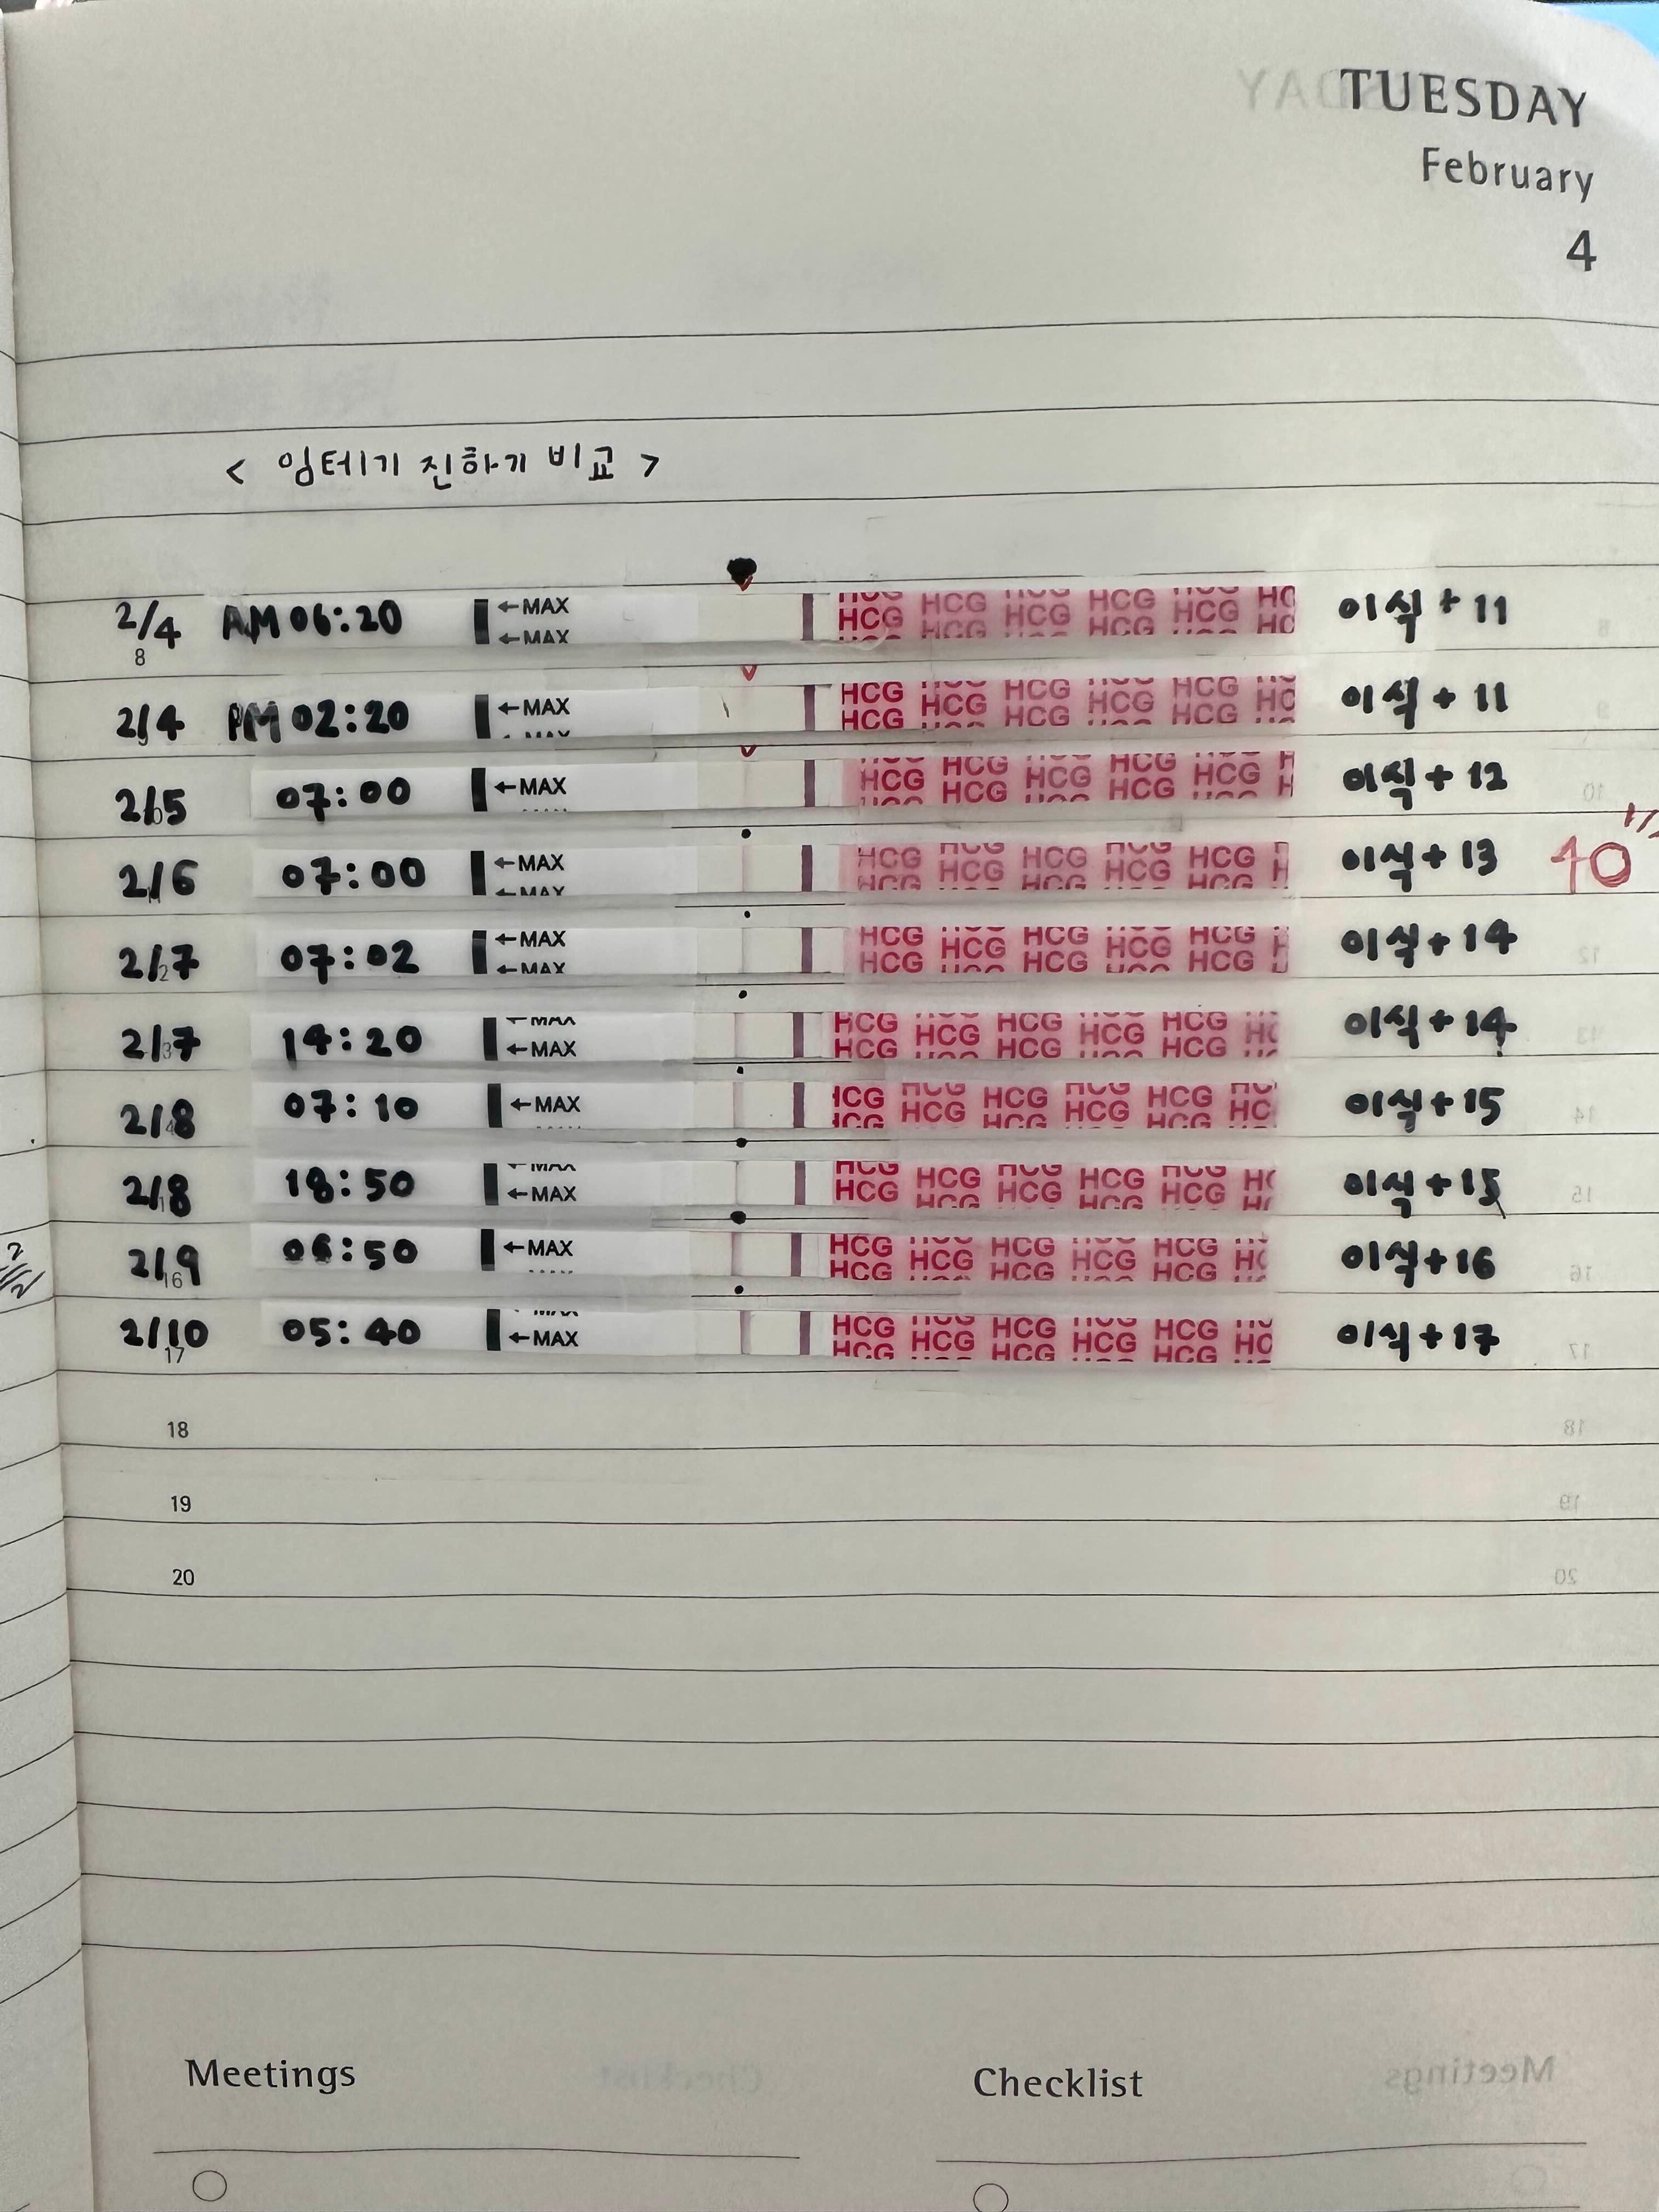 TUESDAY
February
4
< 임테기 진하기 비교 >
2/4 AM 06:20 ←MAX HCG HCG HCG HCG HCG HC 이식 + 11
8 ←MAX HCG HCG HCG HC
2/4 PM 02:20 ←MAX HCG HCG HCG HCG HCG HC 이식 + 11
2/5 07:00 ←MAX HCG HCG HCG HCG HCG 이식 + 12
2/6 07:00 ←MAX HCG HCG HCG HCG HCG 이식 + 13 40
←MAX
2/7 07:02 ←MAX HCG HCG HCG HCG HCG 이식 + 14
←MAX HCG HCG HCG
2/7 14:20 ←MAX HCG HCG HCG HCG HCG 이식 + 14
2/8 07:10 ←MAX HCG HCG HCG HCG HCG HC 이식 + 15
2/8 18:50 ←MAX HCG HCG HCG HCG HCG 이식 + 15
2/9 06:50 ←MAX HCG HCG HCG HCG HCG HC 이식 + 16
16
2/10 05:40 ←MAX HCG HCG HCG HCG HCG HC 이식 + 17
17
18
19
20
Meetings Checklist